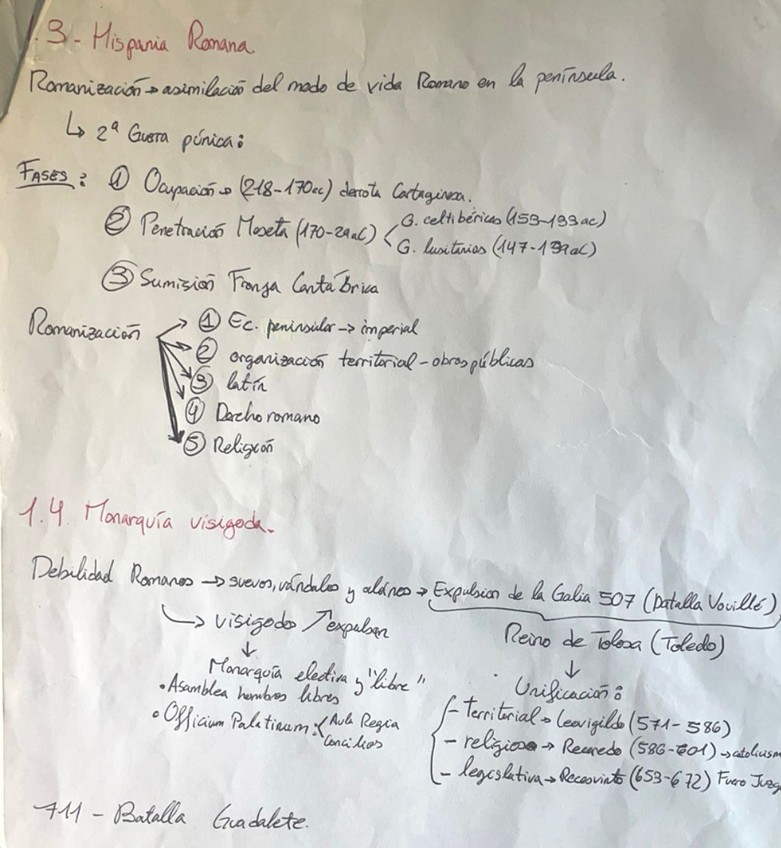 1.3- Hispania Romana.
Romanización → asimilación del modo de vida Romano en la península.
↳ 2ª Guerra púnica:
FASES: ① Ocupación → (218-170ac) derrota Cartaginesa.
② Penetración Meseta (170-29aC) < G. celtibéricas (153-133ac)
G. lusitanas (147-139aC)
③ Sumisión Franja Cantábrica
Romanización → ① Ec. peninsular → imperial
② organización territorial - obras públicas
③ latín
④ Dercho romano
⑤ Religión
1.4. Monarquía visigoda.
Debilidad Romanos → suevos, vándalos y alanos → Expulsion de la Galia 507 (Batalla Vouillé)
↳ visigodos ↗ expulsan
Reino de Tolosa (Toledo)
↓
Monarquía electiva y "libre"
• Asamblea hombres libres
• Officium Palatinum: < Aula Regia
Concilios
↓
Unificación:
- territorial → Leovigildo (571-586)
- religiosa → Recaredo (586-601) → catolicism
- legislativa → Recesvinto (653-672) Fuero Juzg
711 - Batalla Guadalete.